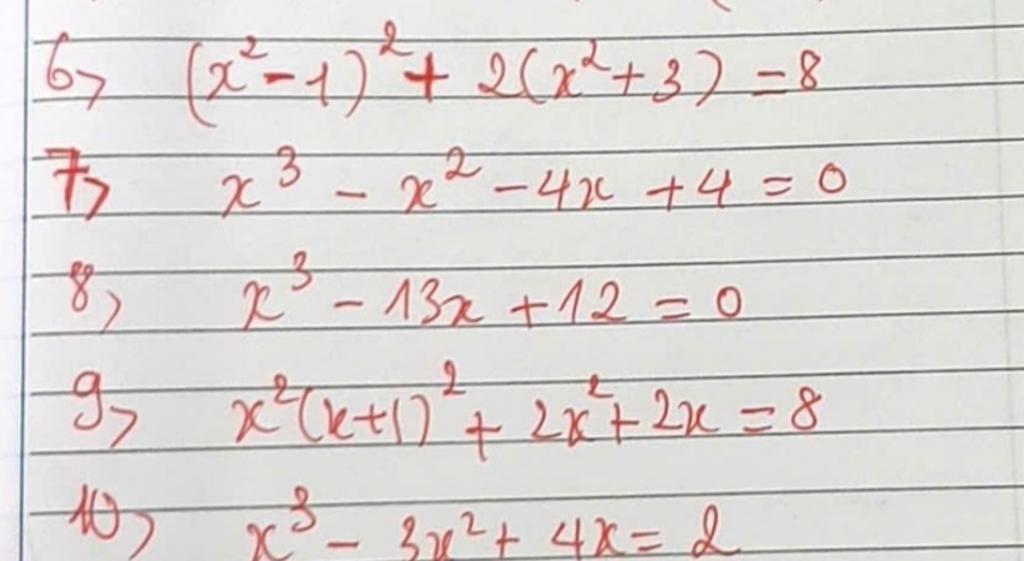 6> (x² - 1)² + 2(x² + 3) = 8
7> x³ - x² - 4x + 4 = 0
8> x³ - 13x + 12 = 0
9> x²(x+1)² + 2x² + 2x = 8
10> x³ - 3x² + 4x = 2